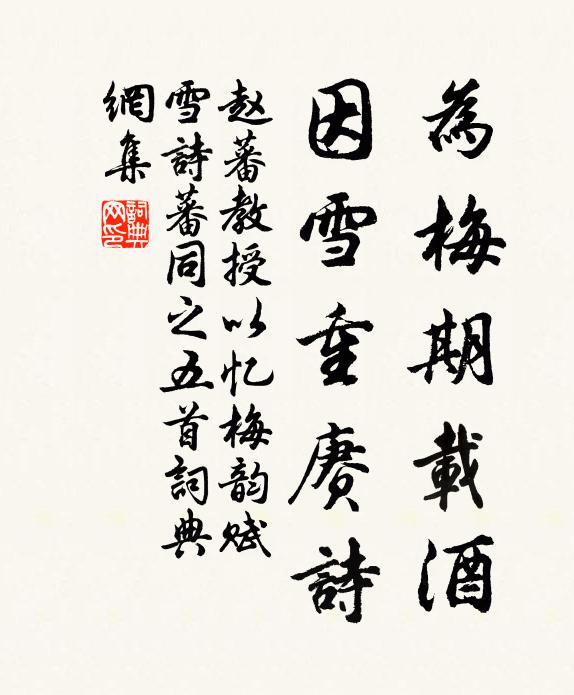 為梅期載酒
因雪重賡詩
赵蕃教授以忆梅韵赋
雪詩蕃同之五首詞典
網集
詞典
网印